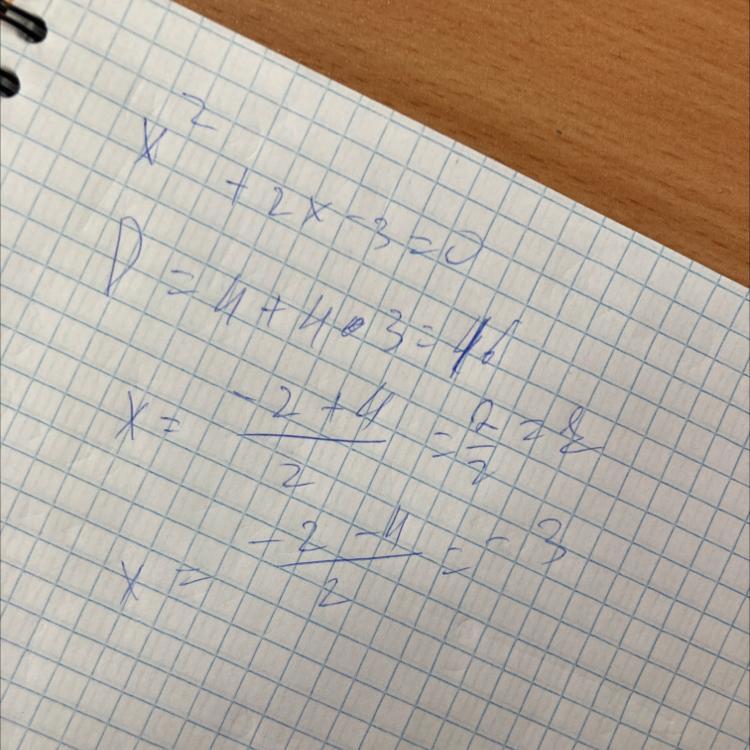 x² + 2x - 3 = 0
D = 4 + 4 • 3 = 16
x = (-2 + 4)/2 = 2/2 =
x = (-2 - 4)/2 = -3